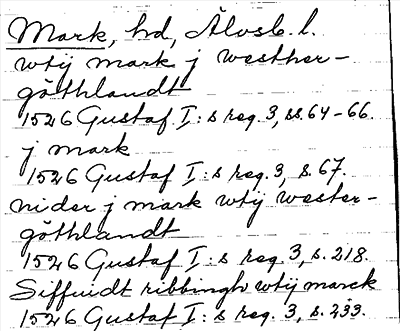 Mark, hd, Älvsb. l.
wtij mark j westher-
götthlandt
1526 Gustaf I:s reg. 3, ss. 64-66.
j mark
1526 Gustaf I:s reg. 3, s. 67.
nider j mark wtij wester-
götthlandt
1526 Gustaf I:s reg. 3, s. 218.
Siffuidt ribbingh wtij marck
1526 Gustaf I:s reg. 3, s. 233.